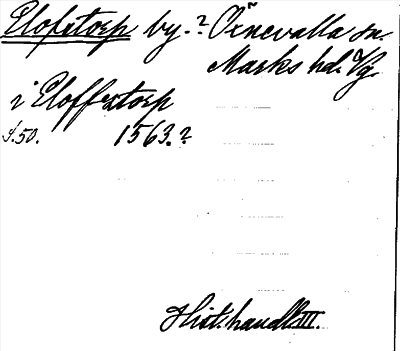 Elofstorp by.? Örnevalla sn.
Marks hd. Vg.
i Eloffztorp
s. 50. 1563.?
Hist. handl. III.